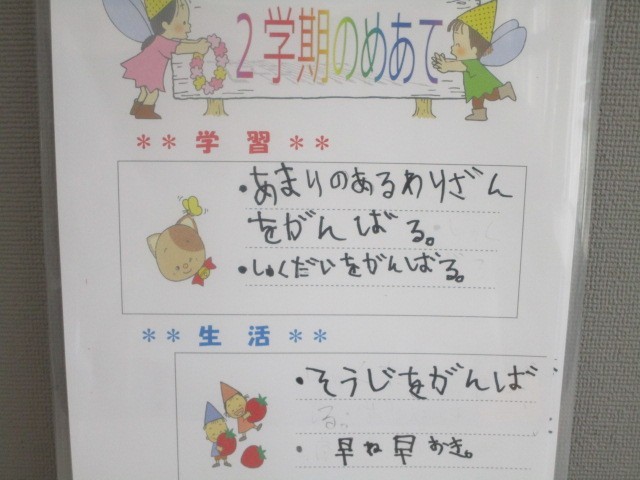 2学期のめあて
** 学習 **
・あまりのあるわりざん
をがんばる。
・しゅくだいをがんばる。
** 生活 **
・そうじをがんば
る。
・早ね早おき。